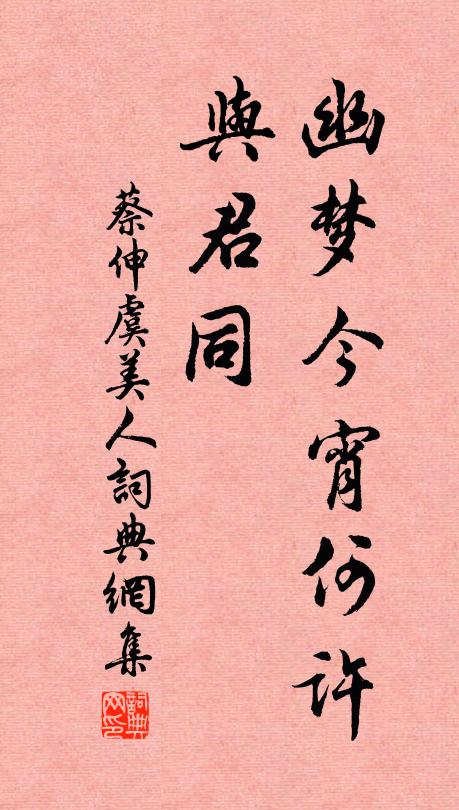 幽梦今宵何许
與君同
蔡伸虞美人詞典網集
詞典网印